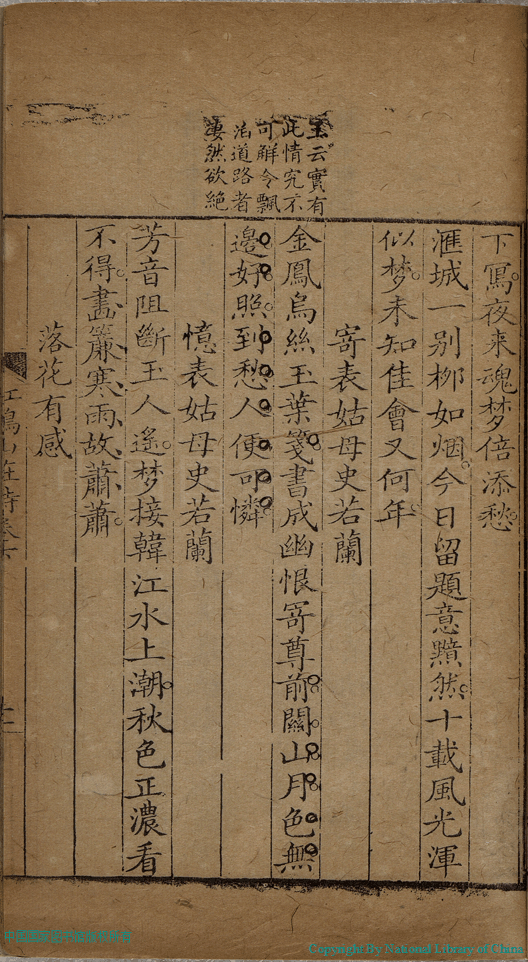 玉云實有
此情究不
可解令飄
泊道路者
淒然欲絶
下寫夜来魂梦倍添愁
滙城一别栁如烟今日留題意黯然十載風光渾
似梦未知佳會又何年
寄表姑母史若蘭
金鳳烏絲玉葉箋書成幽恨寄尊前關山月色無
邊好照到愁人便可憐
憶表姑母史若蘭
芳音阻斷玉人遥梦接韓江水上潮秋色正濃看
不得畵簾寒雨故蕭蕭
落花有感
Copyright By National Library of China